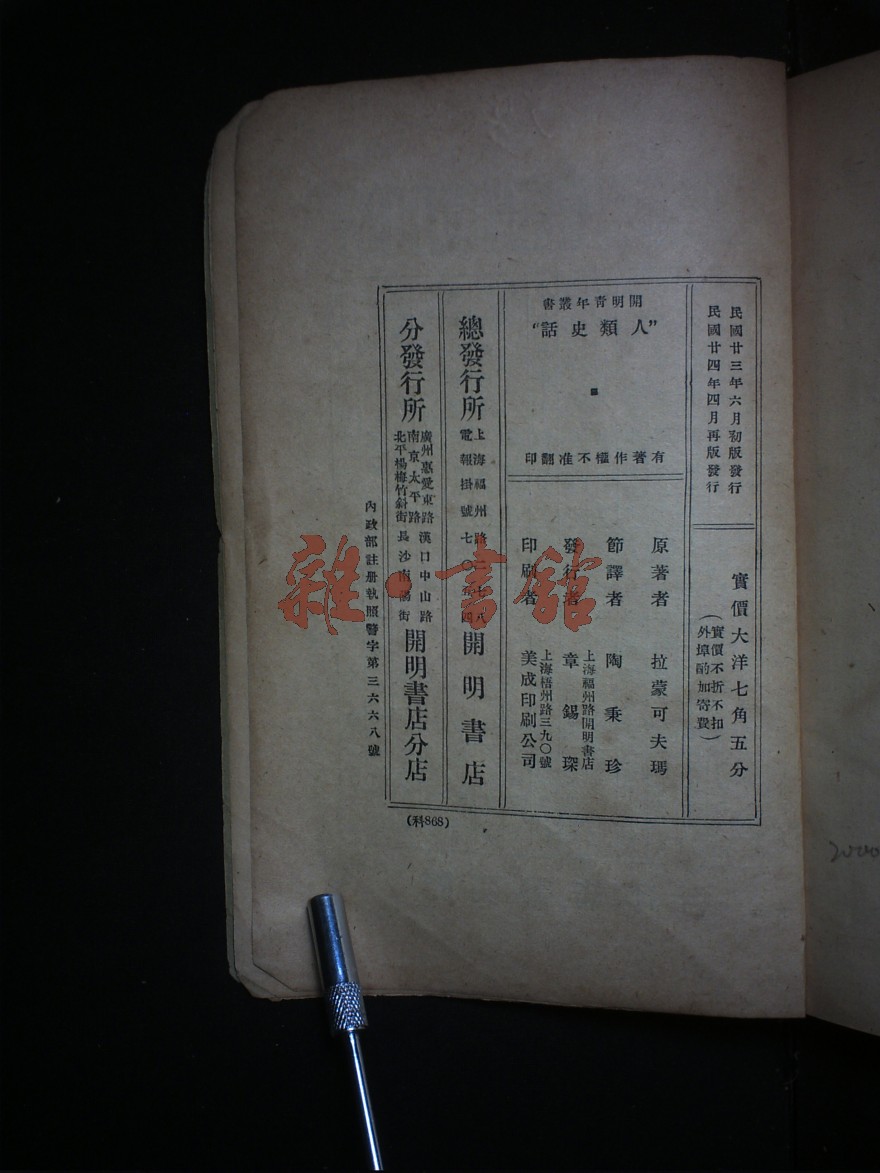 民國廿三年六月初版發行
民國廿四年四月再版發行
實價大洋七角五分
（實價不折不扣
外埠酌加寄費）
開明青年叢書
“人類史話”
有著作權不准翻印
原著者 拉蒙可夫瑪
節譯者 陶秉珍
發行者 章錫琛
上海福州路開明書店
印刷者 美成印刷公司
上海梧州路三九〇號
總發行所
上海福州路二七八
電報掛號七〇五四
開明書店
分發行所
廣州惠愛東路 漢口中山路
南京太平路
北平楊梅竹斜街 長沙南陽街
開明書店分店
內政部註册執照警字第三六六八號
(科868)
雜·書館